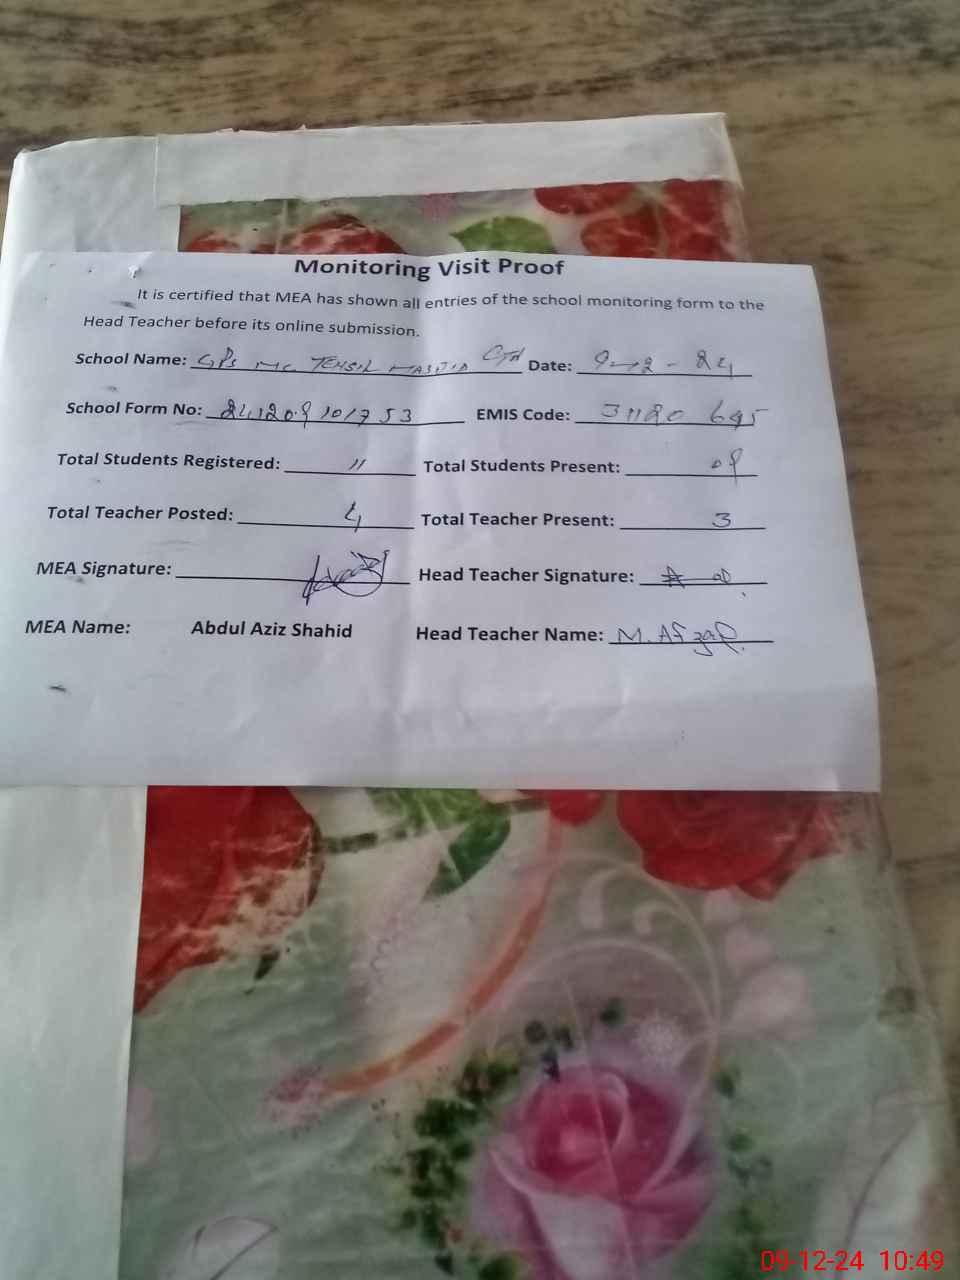 Monitoring Visit Proof
It is certified that MEA has shown all entries of the school monitoring form to the
Head Teacher before its online submission.
School Name: GPS MC TEHSIL MASJID Date: 9-12-24
School Form No: EMIS Code: 31120695
Total Students Registered: 11 Total Students Present: 09
Total Teacher Posted: 4 Total Teacher Present: 3
MEA Signature: Head Teacher Signature:
MEA Name: Abdul Aziz Shahid Head Teacher Name: M. Afzal.
09-12-24 10:49